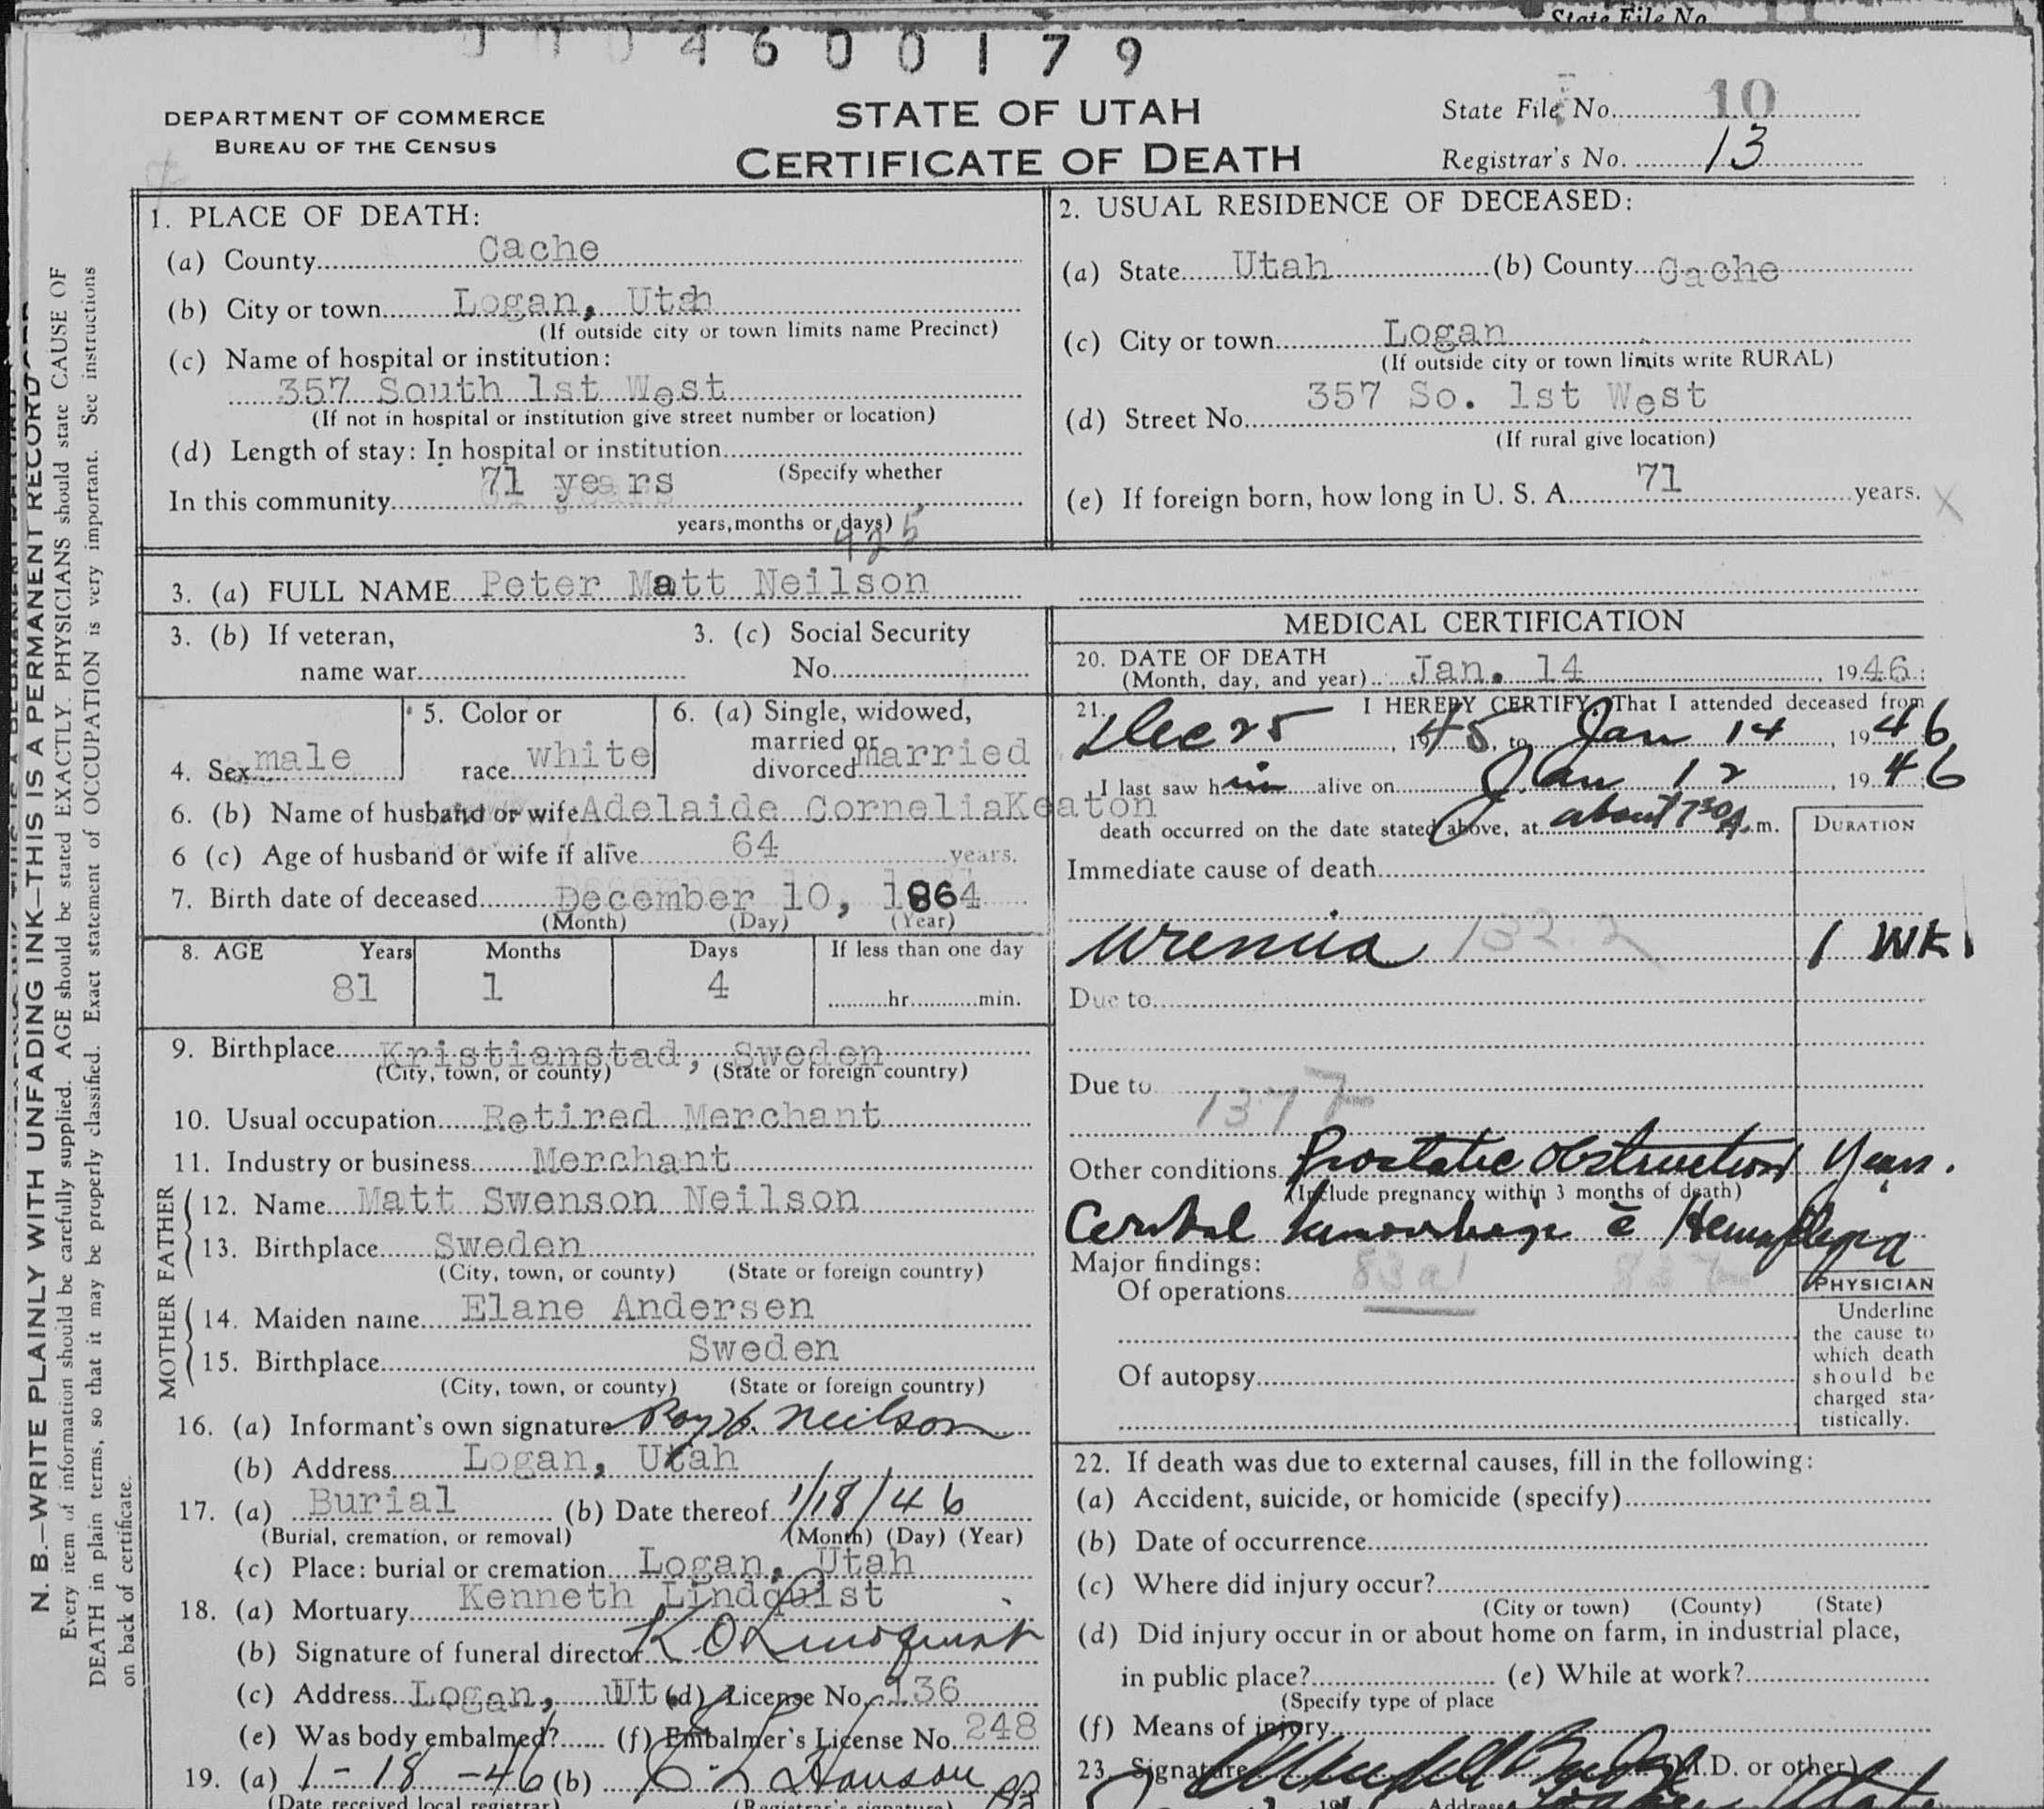 State File No.
4600179
DEPARTMENT OF COMMERCE
BUREAU OF THE CENSUS
STATE OF UTAH
CERTIFICATE OF DEATH
State File No. 10
Registrar's No. 13
N. B.—WRITE PLAINLY WITH UNFADING INK—THIS IS A PERMANENT RECORD
Every item of information should be carefully supplied. AGE should be stated EXACTLY. PHYSICIANS should state CAUSE OF
DEATH in plain terms, so that it may be properly classified. Exact statement of OCCUPATION is very important. See instructions
on back of certificate.
1. PLACE OF DEATH:
(a) County Cache
(b) City or town Logan, Utah
(If outside city or town limits name Precinct)
(c) Name of hospital or institution:
357 South 1st West
(If not in hospital or institution give street number or location)
(d) Length of stay: In hospital or institution
(Specify whether
In this community 71 years
years, months or days)
2. USUAL RESIDENCE OF DECEASED:
(a) State Utah (b) County Cache
(c) City or town Logan
(If outside city or town limits write RURAL)
(d) Street No. 357 So. 1st West
(If rural give location)
(e) If foreign born, how long in U. S. A. 71 years.
3. (a) FULL NAME Peter Matt Neilson
3. (b) If veteran,
name war
3. (c) Social Security
No.
4. Sex male
5. Color or
race white
6. (a) Single, widowed,
married or
divorced married
6. (b) Name of husband or wife Adelaide Cornelia Keaton
6 (c) Age of husband or wife if alive 64 years.
7. Birth date of deceased December 10, 1864
(Month) (Day) (Year)
8. AGE Years Months Days If less than one day
81 1 4 hr. min.
9. Birthplace Kristianstad, Sweden
(City, town, or county) (State or foreign country)
10. Usual occupation Retired Merchant
11. Industry or business Merchant
FATHER
12. Name Matt Swenson Neilson
13. Birthplace Sweden
(City, town, or county) (State or foreign country)
MOTHER
14. Maiden name Elane Andersen
15. Birthplace Sweden
(City, town, or county) (State or foreign country)
16. (a) Informant's own signature Roy Neilson
(b) Address Logan, Utah
17. (a) Burial (b) Date thereof 1/18/46
(Burial, cremation, or removal) (Month) (Day) (Year)
(c) Place: burial or cremation Logan, Utah
18. (a) Mortuary Kenneth Lindquist
(b) Signature of funeral director K O Lindquist
(c) Address Logan, Ut. (d) License No. 136
(e) Was body embalmed? (f) Embalmer's License No. 248
19. (a) 1-18-46 (b) Hanson
(Date received local registrar) (Registrar's signature)
MEDICAL CERTIFICATION
20. DATE OF DEATH
(Month, day, and year) Jan. 14, 1946
21. I HEREBY CERTIFY, That I attended deceased from
Dec 25, 1945, to Jan 14, 1946
I last saw him alive on Jan 12, 1946
death occurred on the date stated above, at about 7 30 A. m.
DURATION
Immediate cause of death
uremia 132.2 1 WK
Due to
Due to
137
Other conditions Prostatic Obstruction Years.
(Include pregnancy within 3 months of death)
Cerebral hemorrhage c̄ Hemiplegia
Major findings:
Of operations 83a1
Of autopsy
PHYSICIAN
Underline
the cause to
which death
should be
charged sta-
tistically.
22. If death was due to external causes, fill in the following:
(a) Accident, suicide, or homicide (specify)
(b) Date of occurrence
(c) Where did injury occur?
(City or town) (County) (State)
(d) Did injury occur in or about home on farm, in industrial place,
in public place? (e) While at work?
(Specify type of place
(f) Means of injury
23. Signature (M.D. or other)
Address